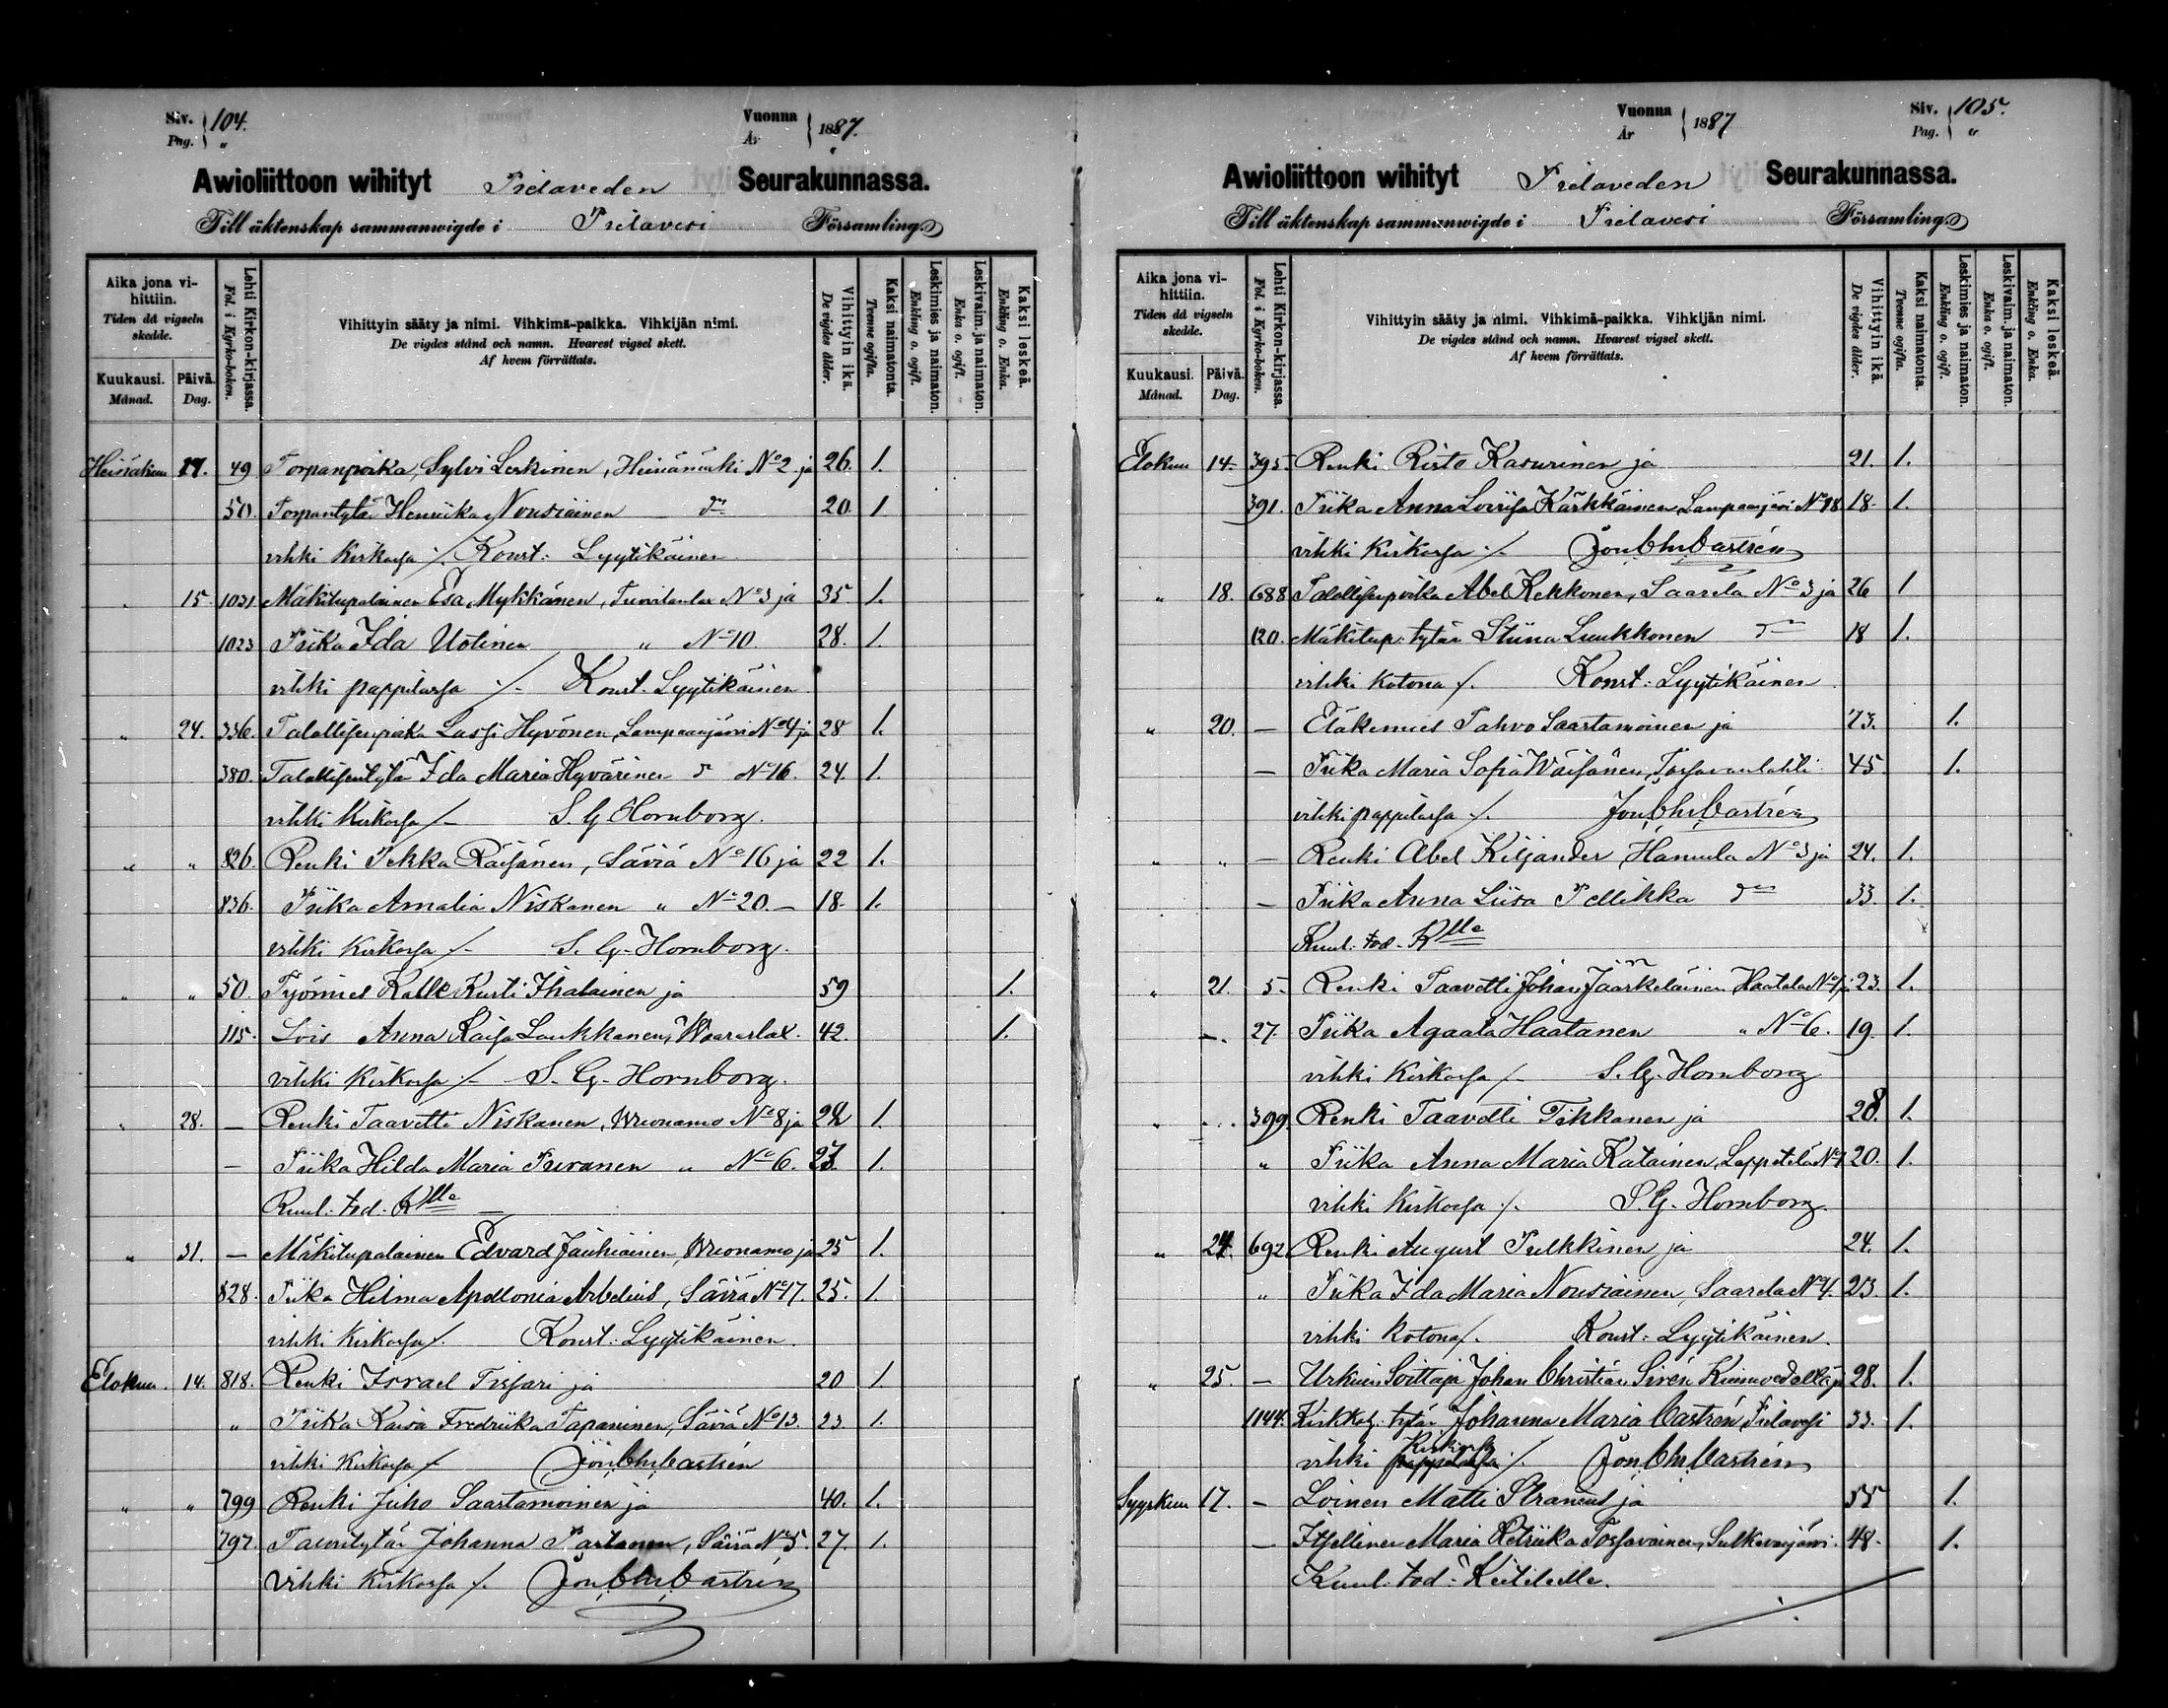 Siv. 104. Vuonna 1887.
Pag. " År "
Awioliittoon wihityt Pielaveden Seurakunnassa.
Till äktenskap sammanwigde i Pielavesi Församling
Aika jona vihittiin.
Tiden då vigseln skedde.
Kuukausi. Månad.
Päivä. Dag.
Lehti Kirkon-kirjassa.
Fol. i Kyrko-boken.
Vihittyin sääty ja nimi. Vihkimä-paikka. Vihkijän nimi.
De vigdes stånd och namn. Hvarest vigsel skett.
Af hvem förrättats.
Vihittyin ikä.
De vigdes ålder.
Kaksi naimatonta.
Tvenne ogifta.
Leskimies ja naimaton.
Enkling o. ogift.
Leskivaim. ja naimaton.
Enka o. ogift.
Kaksi leskeä.
Enkling o. Enka.
Heinäkuu 17. 49 Torpanpoika, Sylvi Leskinen, Heinämäki No 2 ja 26. 1.
50. Torpantytär Henriika Nousiainen d:o 20. 1
vihki Kirkossa ./. Konst: Lyytikäinen
" 15. 1031 Mäkitupalainen Esa Mykkänen, Tuovilanlax No 3 ja 35. 1.
1023 Piika Ida Uotinen " No 10. 28. 1.
vihki pappilassa ./. Konst. Lyytikäinen
" 24. 336. Talollisenpoika Lassi Hyvönen, Lampaanjärvi No 4 ja 28 1.
380. Talollisentytär Ida Maria Hyvärinen d No 16. 24. 1.
vihki Kirkossa ./. S. G. Hornborg.
" " 826. Renki Pekka Räisänen, Säviä No 16 ja 22 1.
836. Piika Amalia Niskanen " No 20. 18. 1.
vihki Kirkossa ./. S. G. Hornborg.
" " 50. Työmies Kalle Kusti Ihalainen ja 59 1.
115. Lois Anna Kaisa Laukkanen, Waaraslax. 42. 1.
vihki Kirkossa ./. S. G. Hornborg.
" 28. — Renki Taavetti Niskanen, Wuonamo No 8 ja 22 1.
— Piika Hilda Maria Puranen " No 6. 23. 1.
Kuul. tod. K:lle
" 31. — Mäkitupalainen Edvard Jauhiainen, Wuonamo ja 25 1.
828. Piika Hilma Apollonia Arbelius, Säviä No 17. 25. 1.
vihki Kirkossa ./. Konst: Lyytikäinen.
Elokuu. 14. 818. Renki Israel Tissari ja 20 1
" Piika Kaisa Fredriika Tapaninen, Säviä No 13. 23 1.
vihki Kirkossa ./. Jon Chr Castrén
" " 799 Renki Juho Saastamoinen ja 40. 1.
797. Talontytär Johanna Partanen, Säviä No 5. 27. 1.
Vihki Kirkossa ./. Jon Chr Castrén
Vuonna 1887 Siv. 105.
År Pag. "
Awioliittoon wihityt Pielaveden Seurakunnassa.
Till äktenskap sammanwigde i Pielavesi Församling
Aika jona vihittiin.
Tiden då vigseln skedde.
Kuukausi. Månad.
Päivä. Dag.
Lehti Kirkon-kirjassa.
Fol. i Kyrko-boken.
Vihittyin sääty ja nimi. Vihkimä-paikka. Vihkijän nimi.
De vigdes stånd och namn. Hvarest vigsel skett.
Af hvem förrättats.
Vihittyin ikä.
De vigdes ålder.
Kaksi naimatonta.
Tvenne ogifta.
Leskimies ja naimaton.
Enkling o. ogift.
Leskivaim. ja naimaton.
Enka o. ogift.
Kaksi leskeä.
Enkling o. Enka.
Elokuu 14. 395. Renki Risto Kasurinen ja 21. 1.
391. Piika Anna Loviisa Kärkkäinen Lampaanjärvi No 18 18. 1.
vihki Kirkossa ./. Jon Chr Castrén
" 18. 688 Talollisenpoika Abel Kekkonen, Saarela No 3 ja 26 1
120. Mäkitup. tytär Stiina Luukkonen d:o 18 1.
vihki Kotona ./. Konst: Lyytikäinen
" 20. — Eläkemies Tahvo Saastamoinen ja 73. 1.
— Piika Maria Sofia Wäisänen, Tossavanlahti 45 1.
vihki pappilassa ./. Jon Chr Castrén
" " — Renki Abel Kiljander, Hamula No 3 ja 24. 1.
— Piika Anna Liisa Pellikka d:o 33. 1.
Kuul. tod. K:lle
" 21. 5. Renki Taavetti Johan Jääskeläinen Haatala No 1 ja 23. 1.
27. Piika Agaata Haatanen " No 6. 19. 1.
vihki Kirkossa ./. S. G. Hornborg
" " 399 Renki Taavetti Tikkanen ja 28. 1.
" Piika Anna Maria Katainen, Leppälä No 1 20. 1.
vihki Kirkossa ./. S. G. Hornborg.
" 24. 692 Renki August Pulkkinen ja 24. 1.
" Piika Ida Maria Nousiainen, Saarela No 4. 23. 1.
vihki Kotona ./. Konst: Lyytikäinen.
" 25. — Urkuin Soittaja Johan Christian Sirén Kiuruvedeltä ja 28. 1.
1144. Kirkkoh. tytär Johanna Maria Castrén Pielavesi 33. 1.
vihki pappilassa Kirkossa ./. Jon Chr Castrén
Syyskuu 17. — Loinen Matti Stranius ja 55 1.
— Itsellinen Maria Retriika Tossavainen, Sulkavanjärvi. 48. 1.
Kuul. tod: Keiteleelle.